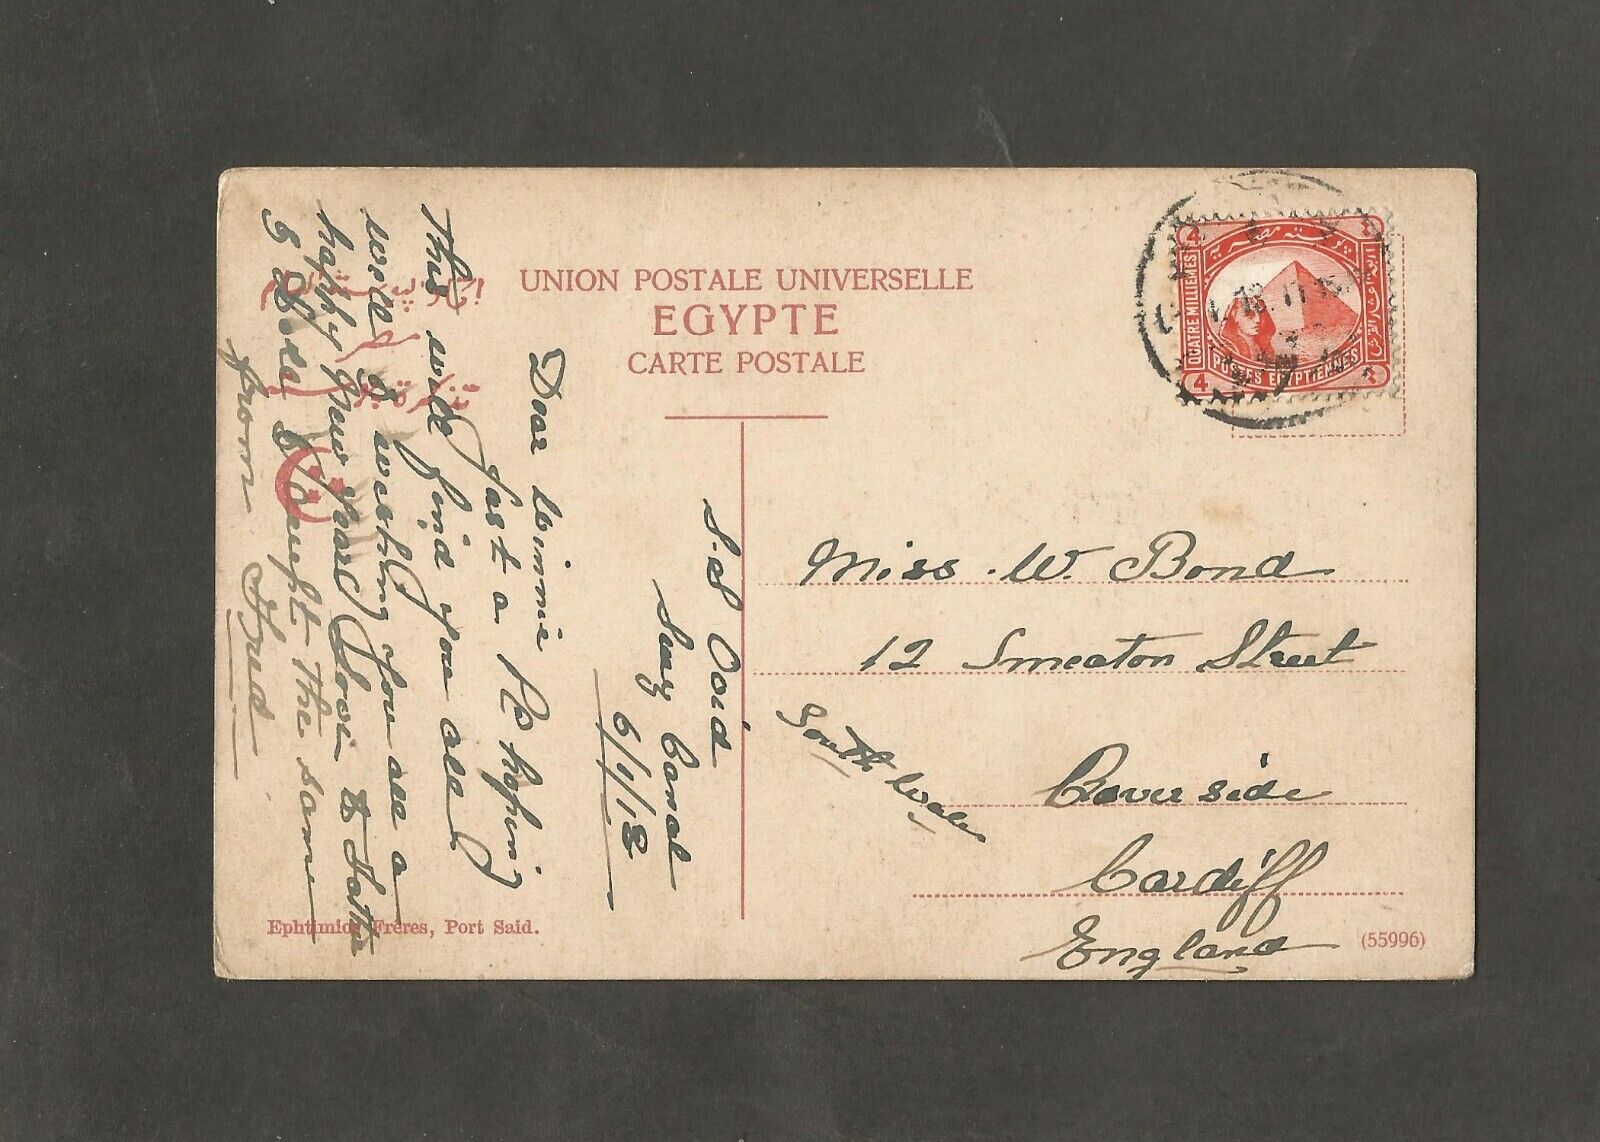 UNION POSTALE UNIVERSELLE
EGYPTE
CARTE POSTALE
4
QUATRE MILLIÈMES
POSTES EGYPTIENNES
4
S.S
Suez Canal
6/1/13
Dear Winnie
Just a Pc hoping
This will find you all
well & wishing you all a
happy New Year Love to
& Bella & the same
from Fred
Miss. W. Bond
12 Smeaton Street
Riverside
Cardiff
South Wales
England
Ephtimios Frères, Port Said.
(55996)